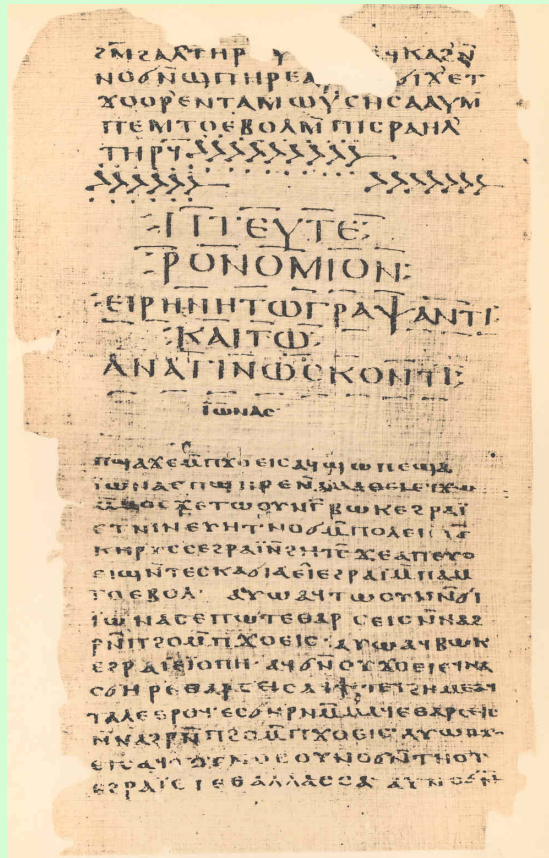 ϩⲙϩⲁⲗⲧⲏⲣ ϥⲕⲁϩⲛ̄
ⲛⲟϭⲛ̄ϣⲡⲏⲣⲉ ϭⲓϫⲉⲧ
ϫⲟⲟⲣⲉⲛⲧⲁⲙⲱⲩⲥⲏⲥⲁⲁⲩⲙ̄
ⲡⲉⲙⲧⲟⲉⲃⲟⲗⲙ̄ⲡⲓⲥⲣⲁⲏⲗ
ⲧⲏⲣϥ
ⲡⲧⲉⲩⲧⲉ
ⲣⲟⲛⲟⲙⲓⲟⲛ
ⲉⲓⲣⲏⲛⲏⲧⲱⲅⲣⲁⲯⲁⲛⲧⲓ
ⲕⲁⲓⲧⲱ
ⲁⲛⲁⲅⲓⲛⲱⲥⲕⲟⲛⲧⲓ
ⲓ̈ⲱⲛⲁⲥ
ⲡϣⲁϫⲉⲙ̄ⲡϫⲟⲉⲓⲥⲁϥϣⲱⲡⲉϣⲁ
ⲓ̈ⲱⲛⲁⲥⲡϣⲏⲣⲉⲛ̄ⲁⲙⲁⲑⲉⲓⲉϥϫⲱ
ⲙ̄ⲙⲟⲥϫⲉⲧⲱⲟⲩⲛⲅ̄ⲃⲱⲕⲉϩⲣⲁⲓ̈
ⲉⲧⲛⲓⲛⲉⲩⲏⲧⲛⲟϭⲙ̄ⲡⲟⲗⲉⲓⲥ
ⲕⲏⲣⲩⲥⲥⲉϩⲣⲁⲓ̈ⲛ̄ϩⲏⲧⲥ̄ϫⲉⲁⲡⲉϩⲣⲟ
ⲟⲩⲛ̄ⲧⲉⲥⲕⲁϭⲓⲁⲉⲓ̈ⲉϩⲣⲁⲓ̈ⲙ̄ⲡⲁⲙ
ⲧⲟⲉⲃⲟⲗ ⲁⲩⲱⲁϥⲧⲱⲟⲩⲛⲛ̄ϭⲓ
ⲓ̈ⲱⲛⲁⲥⲉⲡⲱⲧⲉⲑⲁⲣⲥⲉⲓⲥⲛ̄ⲛⲁϩ
ⲣⲛ̄ⲡϩⲟⲙ̄ⲡϫⲟⲉⲓⲥ· ⲁⲩⲱⲁϥⲃⲱⲕ
ⲉϩⲣⲁⲓ̈ⲉⲓ̈ⲟⲡⲏ· ⲁϥϭⲛⲟⲩϫⲟⲉⲓⲉϥⲛⲁ
ⲥϭⲏⲣⲉⲑⲁⲣⲥⲉⲓⲥ ⲧⲉϥϩⲏⲙⲉⲁϥ
ⲧⲁⲗⲉⲉⲣⲟϥⲉⲥϭⲏⲣⲛⲙ̄ⲙⲁϥⲉⲑⲁⲣⲥⲉⲓⲥ
ⲛ̄ⲛⲁϩⲣⲙ̄ⲡϩⲟⲙ̄ⲡϫⲟⲉⲓⲥ· ⲁⲩⲱⲡϫⲟ
ⲉⲓⲥⲁϥⲧⲟⲩⲛⲟⲥⲟⲩⲛⲟϭⲛ̄ⲧⲏⲟⲩ
ⲉϩⲣⲁⲓ̈ⲉϫⲉⲑⲁⲗⲗⲁⲥⲥⲁ ⲁⲩⲛⲟϭⲛ̄